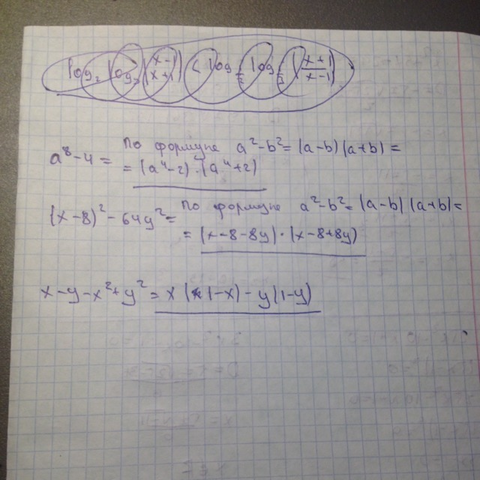 log₂ log₃ (x-1/x+1) < log log (x+1/x-1)
a⁸-4 = по формуле a²-b²=(a-b)(a+b)=
= (a⁴-2)·(a⁴+2)
(x-8)²-64y²= по формуле a²-b²=(a-b)(a+b)=
= (x-8-8y)·(x-8+8y)
x-y-x²+y² = x(1-x)-y(1-y)